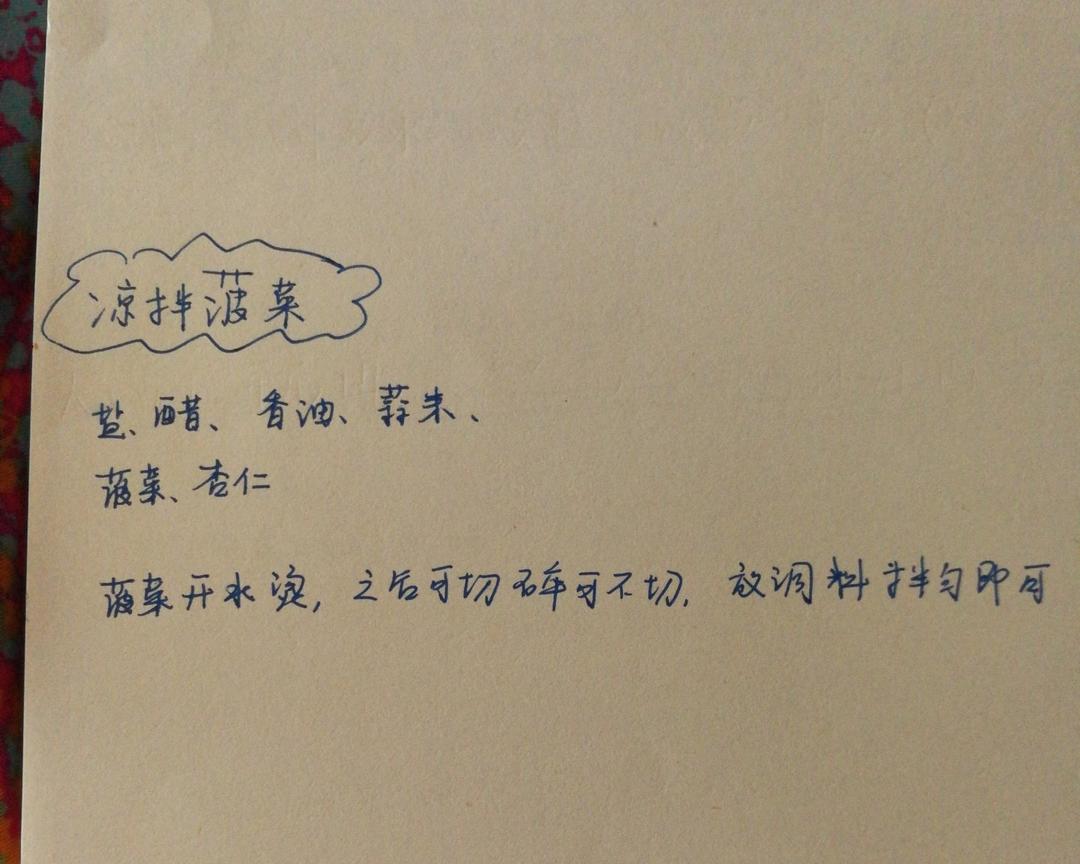 凉拌菠菜
盐、醋、香油、蒜末、
菠菜、杏仁
菠菜开水烫,之后可切碎可不切,放调料拌匀即可